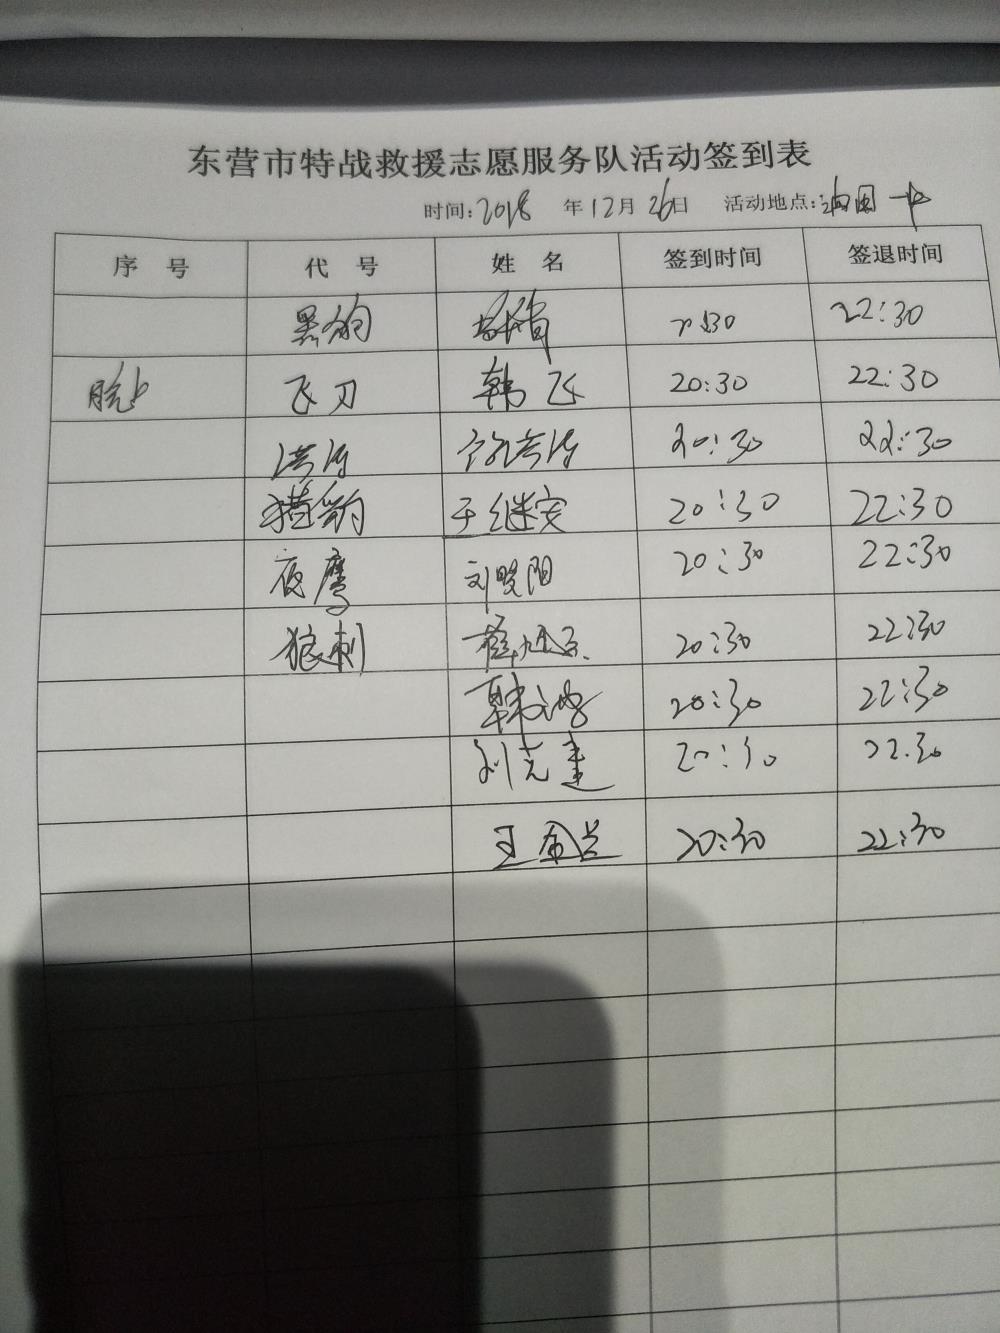 东营市特战救援志愿服务队活动签到表
时间:2018 年12月26日 活动地点:油田一中
序 号 代 号 姓 名 签到时间 签退时间
黑豹 22:30
晚上 飞刀 韩飞 20:30 22:30
洪涛 徐洪涛 20:30 22:30
猎豹 于继安 20:30 22:30
夜鹰 刘晓阳 20:30 22:30
狼刺 20:30 22:30
韩 20:30 22:30
刘克建 20:30 22:30
王金兰 20:30 22:30